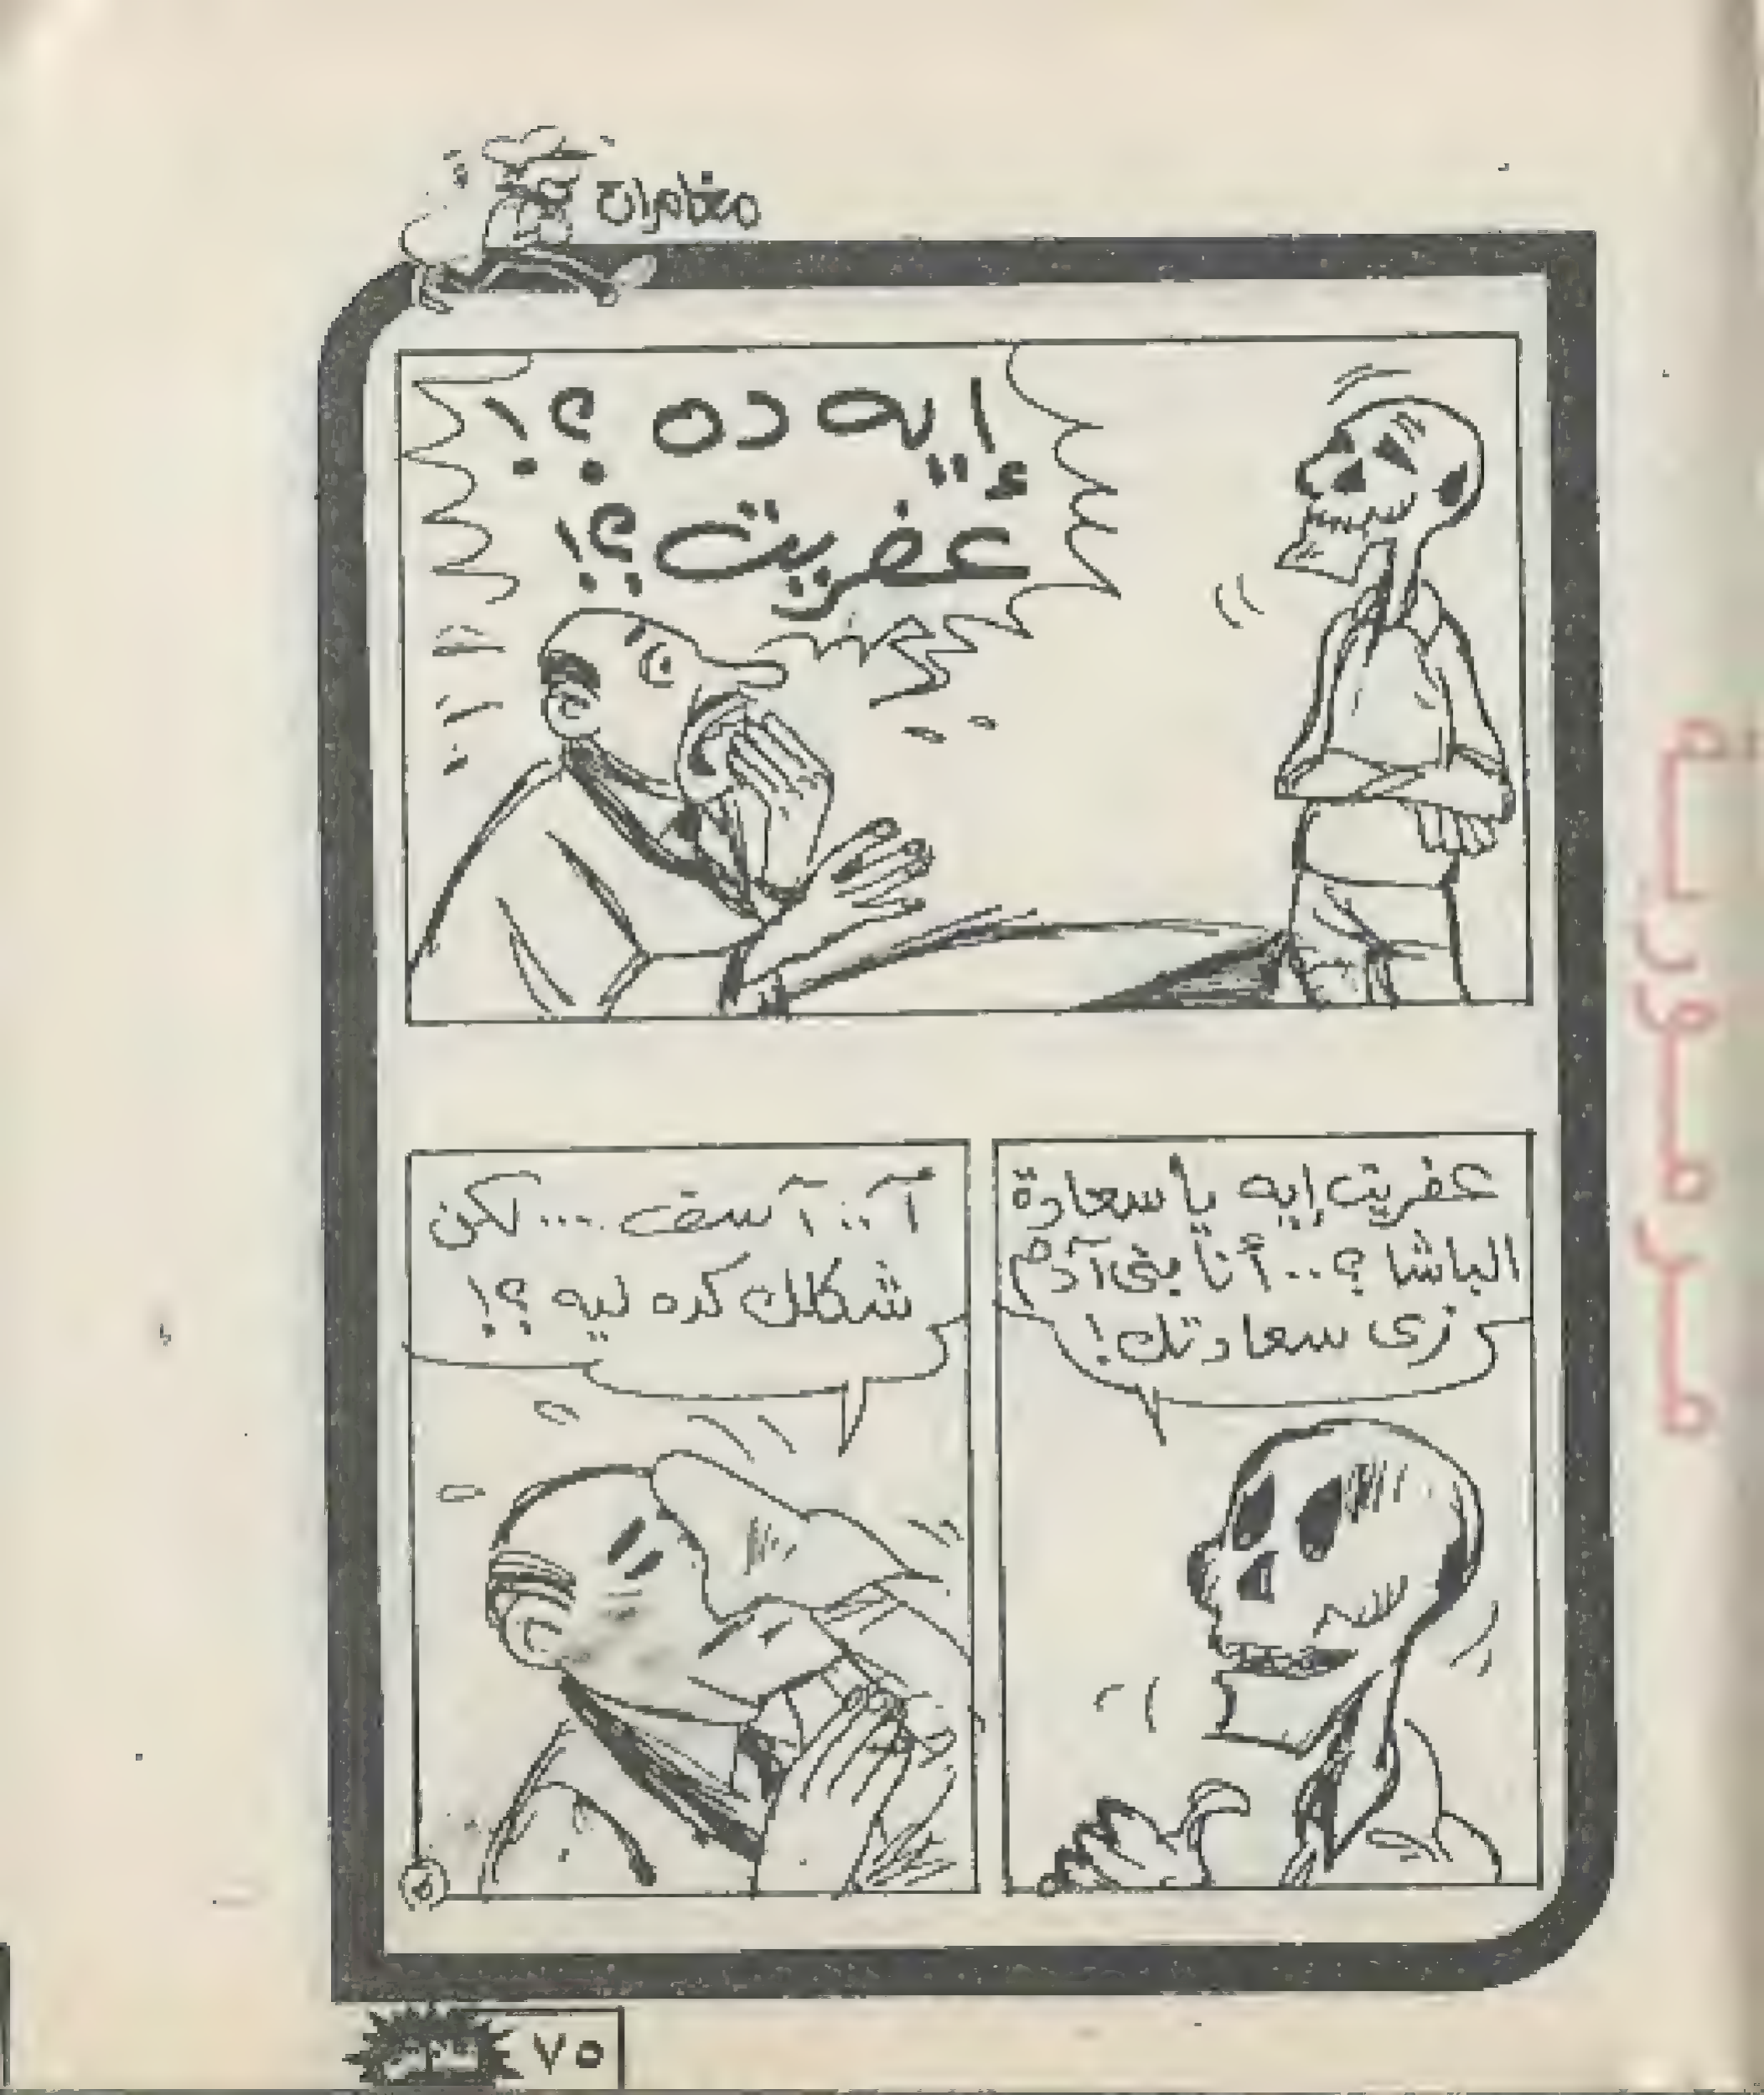 مغامرات
إيه ده ؟!
عفريت ؟!
عفريت إيه يا سعادة
الباشا ؟.. أنا بنى آدم
زى سعادتك !
آ.. آسف ... لكن
شكلك كده ليه ؟!
٥
٧٥
فلاش